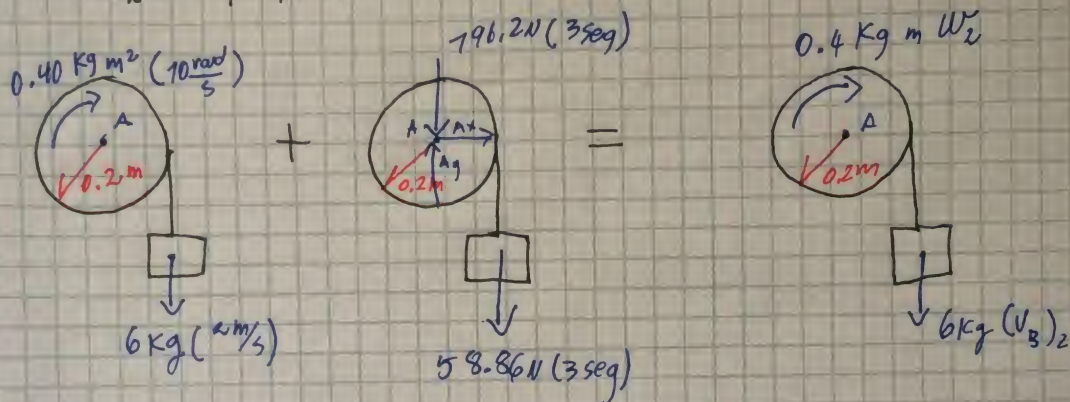 0.40 Kg m² (10 rad/s)
A
0.2 m
6 Kg (2 m/s)
+
196.2N (3 seg)
A Ax
Ay
0.2m
58.86N (3 seg)
=
0.4 Kg m W₂
A
0.2m
6 Kg (V_B)₂